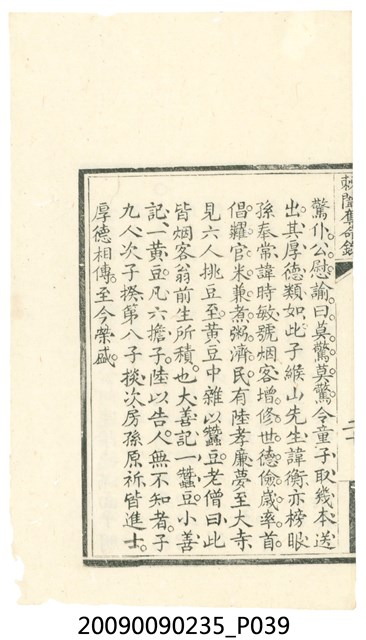 棘闈奪命錄
驚仆公慰諭曰莫驚莫驚令童子取幾本送
出其厚德類如此子緱山先生諱衡亦榜眼
孫奉常諱時敏號烟客增修世德儉歲率首
倡糶官米兼煮粥濟民有陸孝廉夢至大寺
見六人挑豆至黃豆中雜以蠶豆老僧曰此
皆烟客翁前生所積也大善記一蠶豆小善
記一黃豆凡六擔子陸以告人無不知者子
九人次子揆第八子掞次房孫原祈皆進士
厚德相傳至今榮盛
20090090235_P039